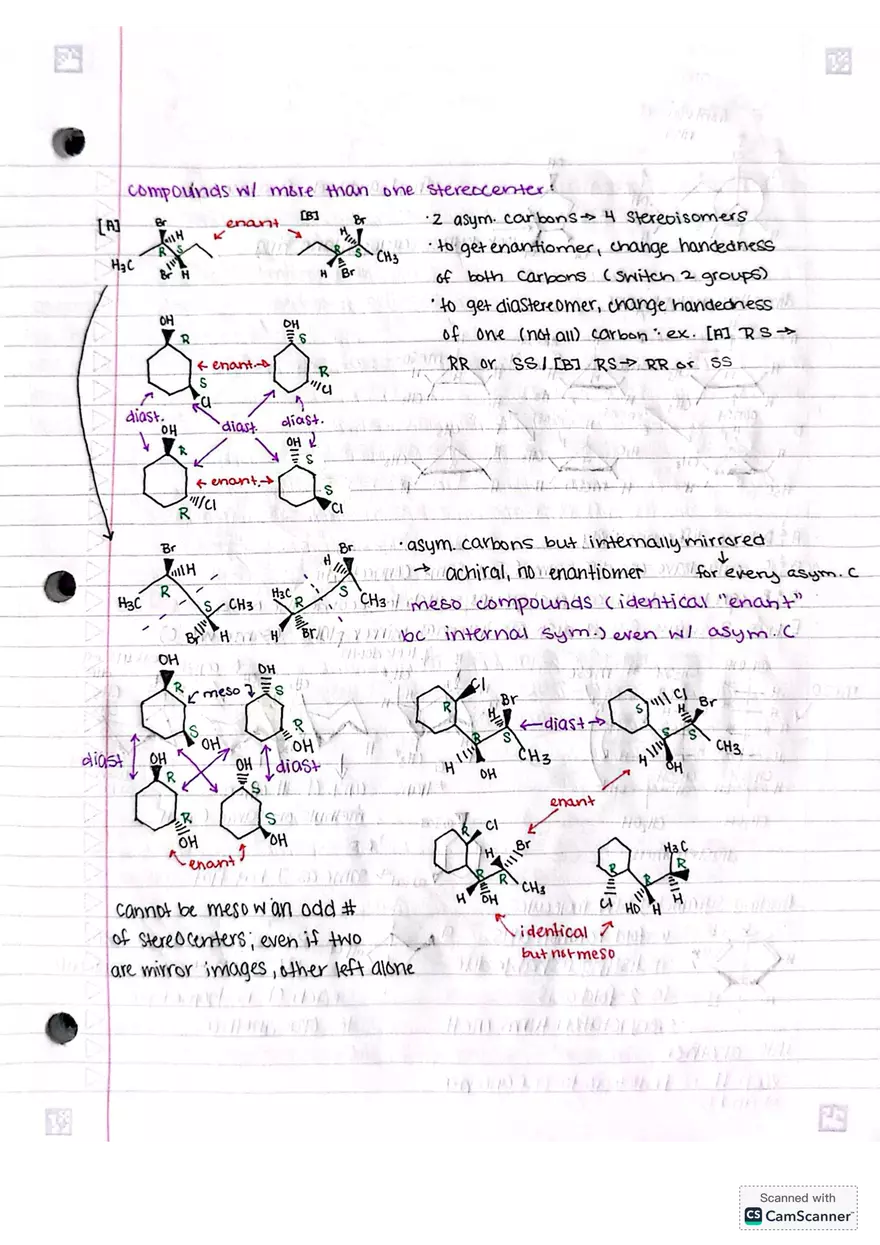 compounds w/ more than one stereocenter:
[A] Br H R S H3C Br H
enant
[B] Br H R S CH3 H Br
· 2 asym. carbons → 4 stereoisomers
· to get enantiomer, change handedness
of both carbons (switch 2 groups)
· to get diastereomer, change handedness
of one (not all) carbon : ex. [A] RS →
RR or SS / [B] RS → RR or SS
OH R S Cl
← enant →
OH S R Cl
diast. diast diast.
OH R R Cl
← enant. →
OH S S Cl
· asym. carbons but internally mirrored
→ achiral, no enantiomer for every asym. C
meso compounds (identical "enant"
bc internal sym.) even w/ asym. C
Br H R H3C S CH3 Br H
Br H H3C R S CH3 H Br
OH R S OH
meso
OH S R OH
diast diast
OH R R OH
enant
OH S S OH
Cl R H Br R S CH3 H OH
← diast →
S Cl H Br S S CH3 H OH
enant
R Cl H Br R R CH3 H OH
R Cl H3C R R HO H H
identical
but not meso
cannot be meso w an odd #
of stereocenters; even if two
are mirror images, other left alone
Scanned with
CS CamScanner